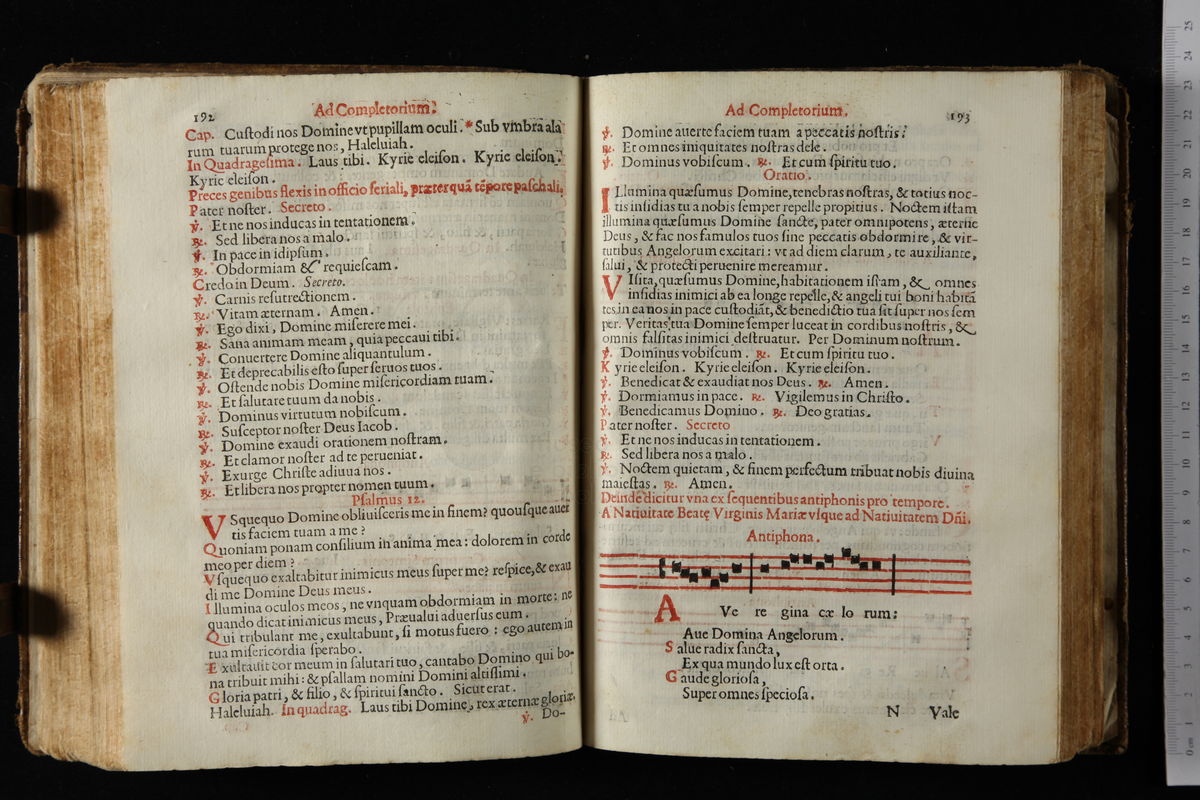 192
Ad Completorium.
Cap. Cuſtodi nos Domine vt pupillam oculi. * Sub vmbra ala
rum tuarum protege nos, Haleluiah.
In Quadrageſima. Laus tibi. Kyrie eleiſon. Kyrie eleiſon.
Kyrie eleiſon.
Preces genibus flexis in officio feriali, præterquã tẽpore paſchali.
Pater noſter. Secreto.
℣. Et ne nos inducas in tentationem.
℟. Sed libera nos a malo.
℣. In pace in idipſum.
℟. Obdormiam & requieſcam.
Credo in Deum. Secreto.
℣. Carnis reſurrectionem.
℟. Vitam æternam. Amen.
℣. Ego dixi, Domine miſerere mei.
℟. Sana animam meam, quia peccaui tibi.
℣. Conuertere Domine aliquantulum.
℟. Et deprecabilis eſto ſuper ſeruos tuos.
℣. Oſtende nobis Domine miſericordiam tuam.
℟. Et ſalutare tuum da nobis.
℣. Dominus virtutum nobiſcum.
℟. Suſceptor noſter Deus Iacob.
℣. Domine exaudi orationem noſtram.
℟. Et clamor noſter ad te perueniat.
℣. Exurge Chriſte adiuua nos.
℟. Et libera nos propter nomen tuum.
Pſalmus 12.
VSquequo Domine obliuiſceris me in finem? quouſque auer
tis faciem tuam a me?
Quoniam ponam conſilium in anima mea: dolorem in corde
meo per diem?
Vſquequo exaltabitur inimicus meus ſuper me? reſpice, & exau
di me Domine Deus meus.
Illumina oculos meos, ne vnquam obdormiam in morte: ne
quando dicat inimicus meus, Præualui aduerſus eum.
Qui tribulant me, exultabunt, ſi motus fuero: ego autem in
tua miſericordia ſperabo.
Exultauit cor meum in ſalutari tuo, cantabo Domino qui bo-
na tribuit mihi: & pſallam nomini Domini altiſſimi.
Gloria patri, & filio, & ſpiritui ſancto. Sicut erat.
Haleluiah. In quadrag. Laus tibi Domine, rex æternæ gloriæ.
℣. Do-
Ad Completorium.
193
℣. Domine auerte faciem tuam a peccatis noſtris.
℟. Et omnes iniquitates noſtras dele.
℣. Dominus vobiſcum. ℟. Et cum ſpiritu tuo.
Oratio.
ILlumina quæſumus Domine, tenebras noſtras, & totius noc-
tis inſidias tu a nobis ſemper repelle propitius. Noctem iſtam
illumina quæſumus Domine ſancte, pater omnipotens, æterne
Deus, & fac nos famulos tuos ſine peccatis obdormire, & vir-
tutibus Angelorum excitari: vt ad diem clarum, te auxiliante,
ſalui, & protecti peruenire mereamur.
VIſita, quæſumus Domine, habitationem iſtam, & omnes
inſidias inimici ab ea longe repelle, & angeli tui boni habitã
tes in ea nos in pace cuſtodiãt, & benedictio tua ſit ſuper nos ſem
per. Veritas tua Domine ſemper luceat in cordibus noſtris, &
omnis falſitas inimici deſtruatur. Per Dominum noſtrum.
℣. Dominus vobiſcum. ℟. Et cum ſpiritu tuo.
Kyrie eleiſon. Kyrie eleiſon. Kyrie eleiſon.
℣. Benedicat & exaudiat nos Deus. ℟. Amen.
℣. Dormiamus in pace. ℟. Vigilemus in Chriſto.
℣. Benedicamus Domino. ℟. Deo gratias.
Pater noſter. Secreto
℣. Et ne nos inducas in tentationem.
℟. Sed libera nos a malo.
℣. Noctem quietam, & finem perfectum tribuat nobis diuina
maieſtas. ℟. Amen.
Deinde dicitur vna ex ſequentibus antiphonis pro tempore.
A Natiuitate Beatę Virginis Mariæ vſque ad Natiuitatem Dñi.
Antiphona.
AVe re gina cæ lo rum:
Aue Domina Angelorum.
Salue radix ſancta,
Ex qua mundo lux eſt orta.
Gaude glorioſa,
Super omnes ſpecioſa.
N Vale